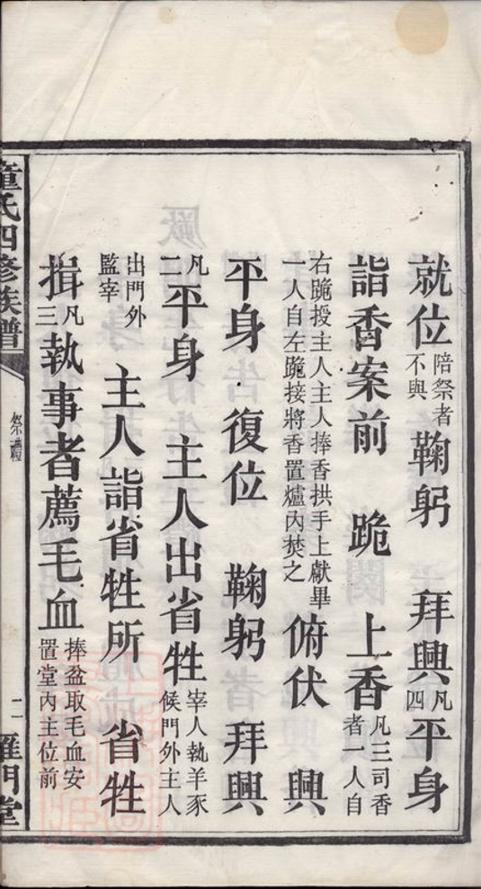 就位陪祭者不與鞠躬　拜興凡四平身
詣香案前　跪　上香凡三司香者一人自
右跪授主人主人捧香拱手上獻畢一人自左跪接將香置爐內焚之俯伏　興
平身　復位　鞠躬　拜興
凡二平身　主人出省牲宰人執羊豕候門外主人
出門外監宰　主人詣省牲所　省牲
揖凡三執事者薦毛血捧盆取毛血安置堂內主位前
童氏四修族譜　祭禮　二　雁門堂